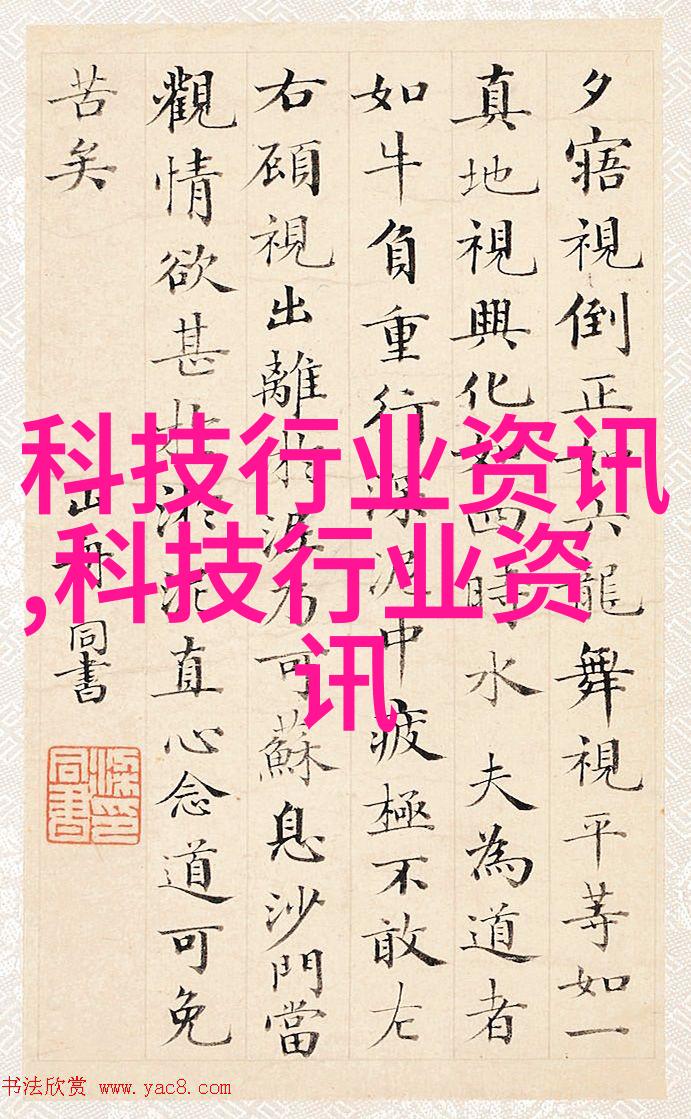 夕寤視倒正如六龍舞視平等如一
真地視興化如四時水夫為道者
如牛負重行深泥中疲極不敢左
右頋視出離於泥乃可蘇息沙門當
觀情欲甚於淤泥直心念道可免
苦矣
山舟同書
科技行业资讯
,科技行业资
讯
书法欣赏 www.yac8.com